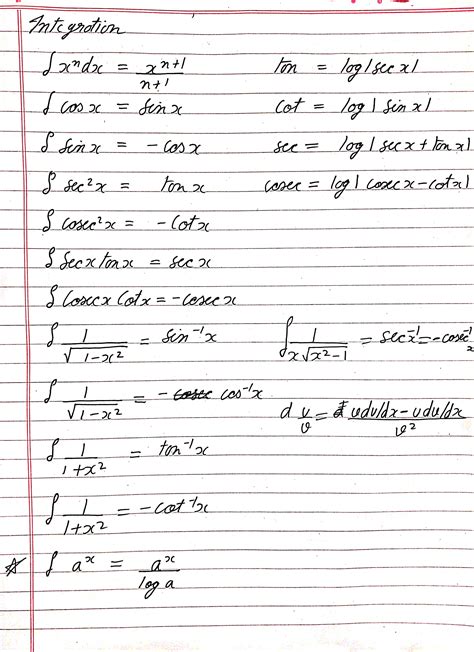 Integration
∫ xⁿdx = xⁿ⁺¹/n+1    tan = log|sec x|
∫ cos x = sin x    cot = log|sin x|
∫ sin x = -cos x    sec = log|sec x + tan x|
∫ sec²x = tan x    cosec = log|cosec x - cot x|
∫ cosec²x = -cot x
∫ sec x tan x = sec x
∫ cosec x cot x = -cosec x
∫ 1/√(1-x²) = sin⁻¹x    ∫ 1/x√(x²-1) = sec⁻¹x = -cosec⁻¹x
∫ 1/√(1-x²) = -cos⁻¹x    d u/v = vdu/dx - udu/dx / v²
∫ 1/1+x² = tan⁻¹x
∫ 1/1+x² = -cot⁻¹x
☆ ∫ aˣ = aˣ/log a